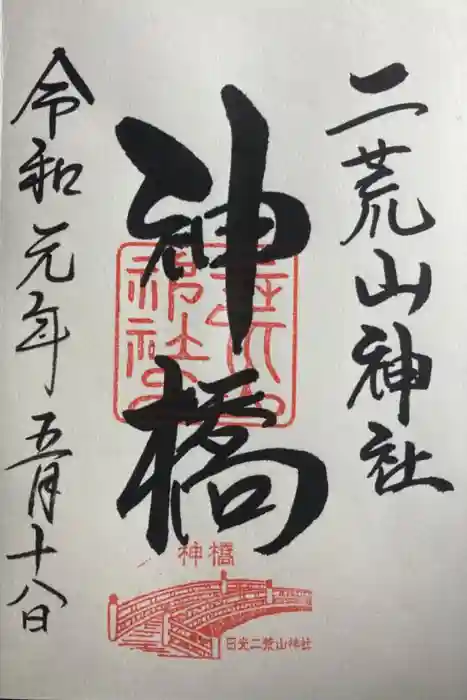 二荒山神社
神橋
令和元年五月十八日
神橋
日光二荒山神社